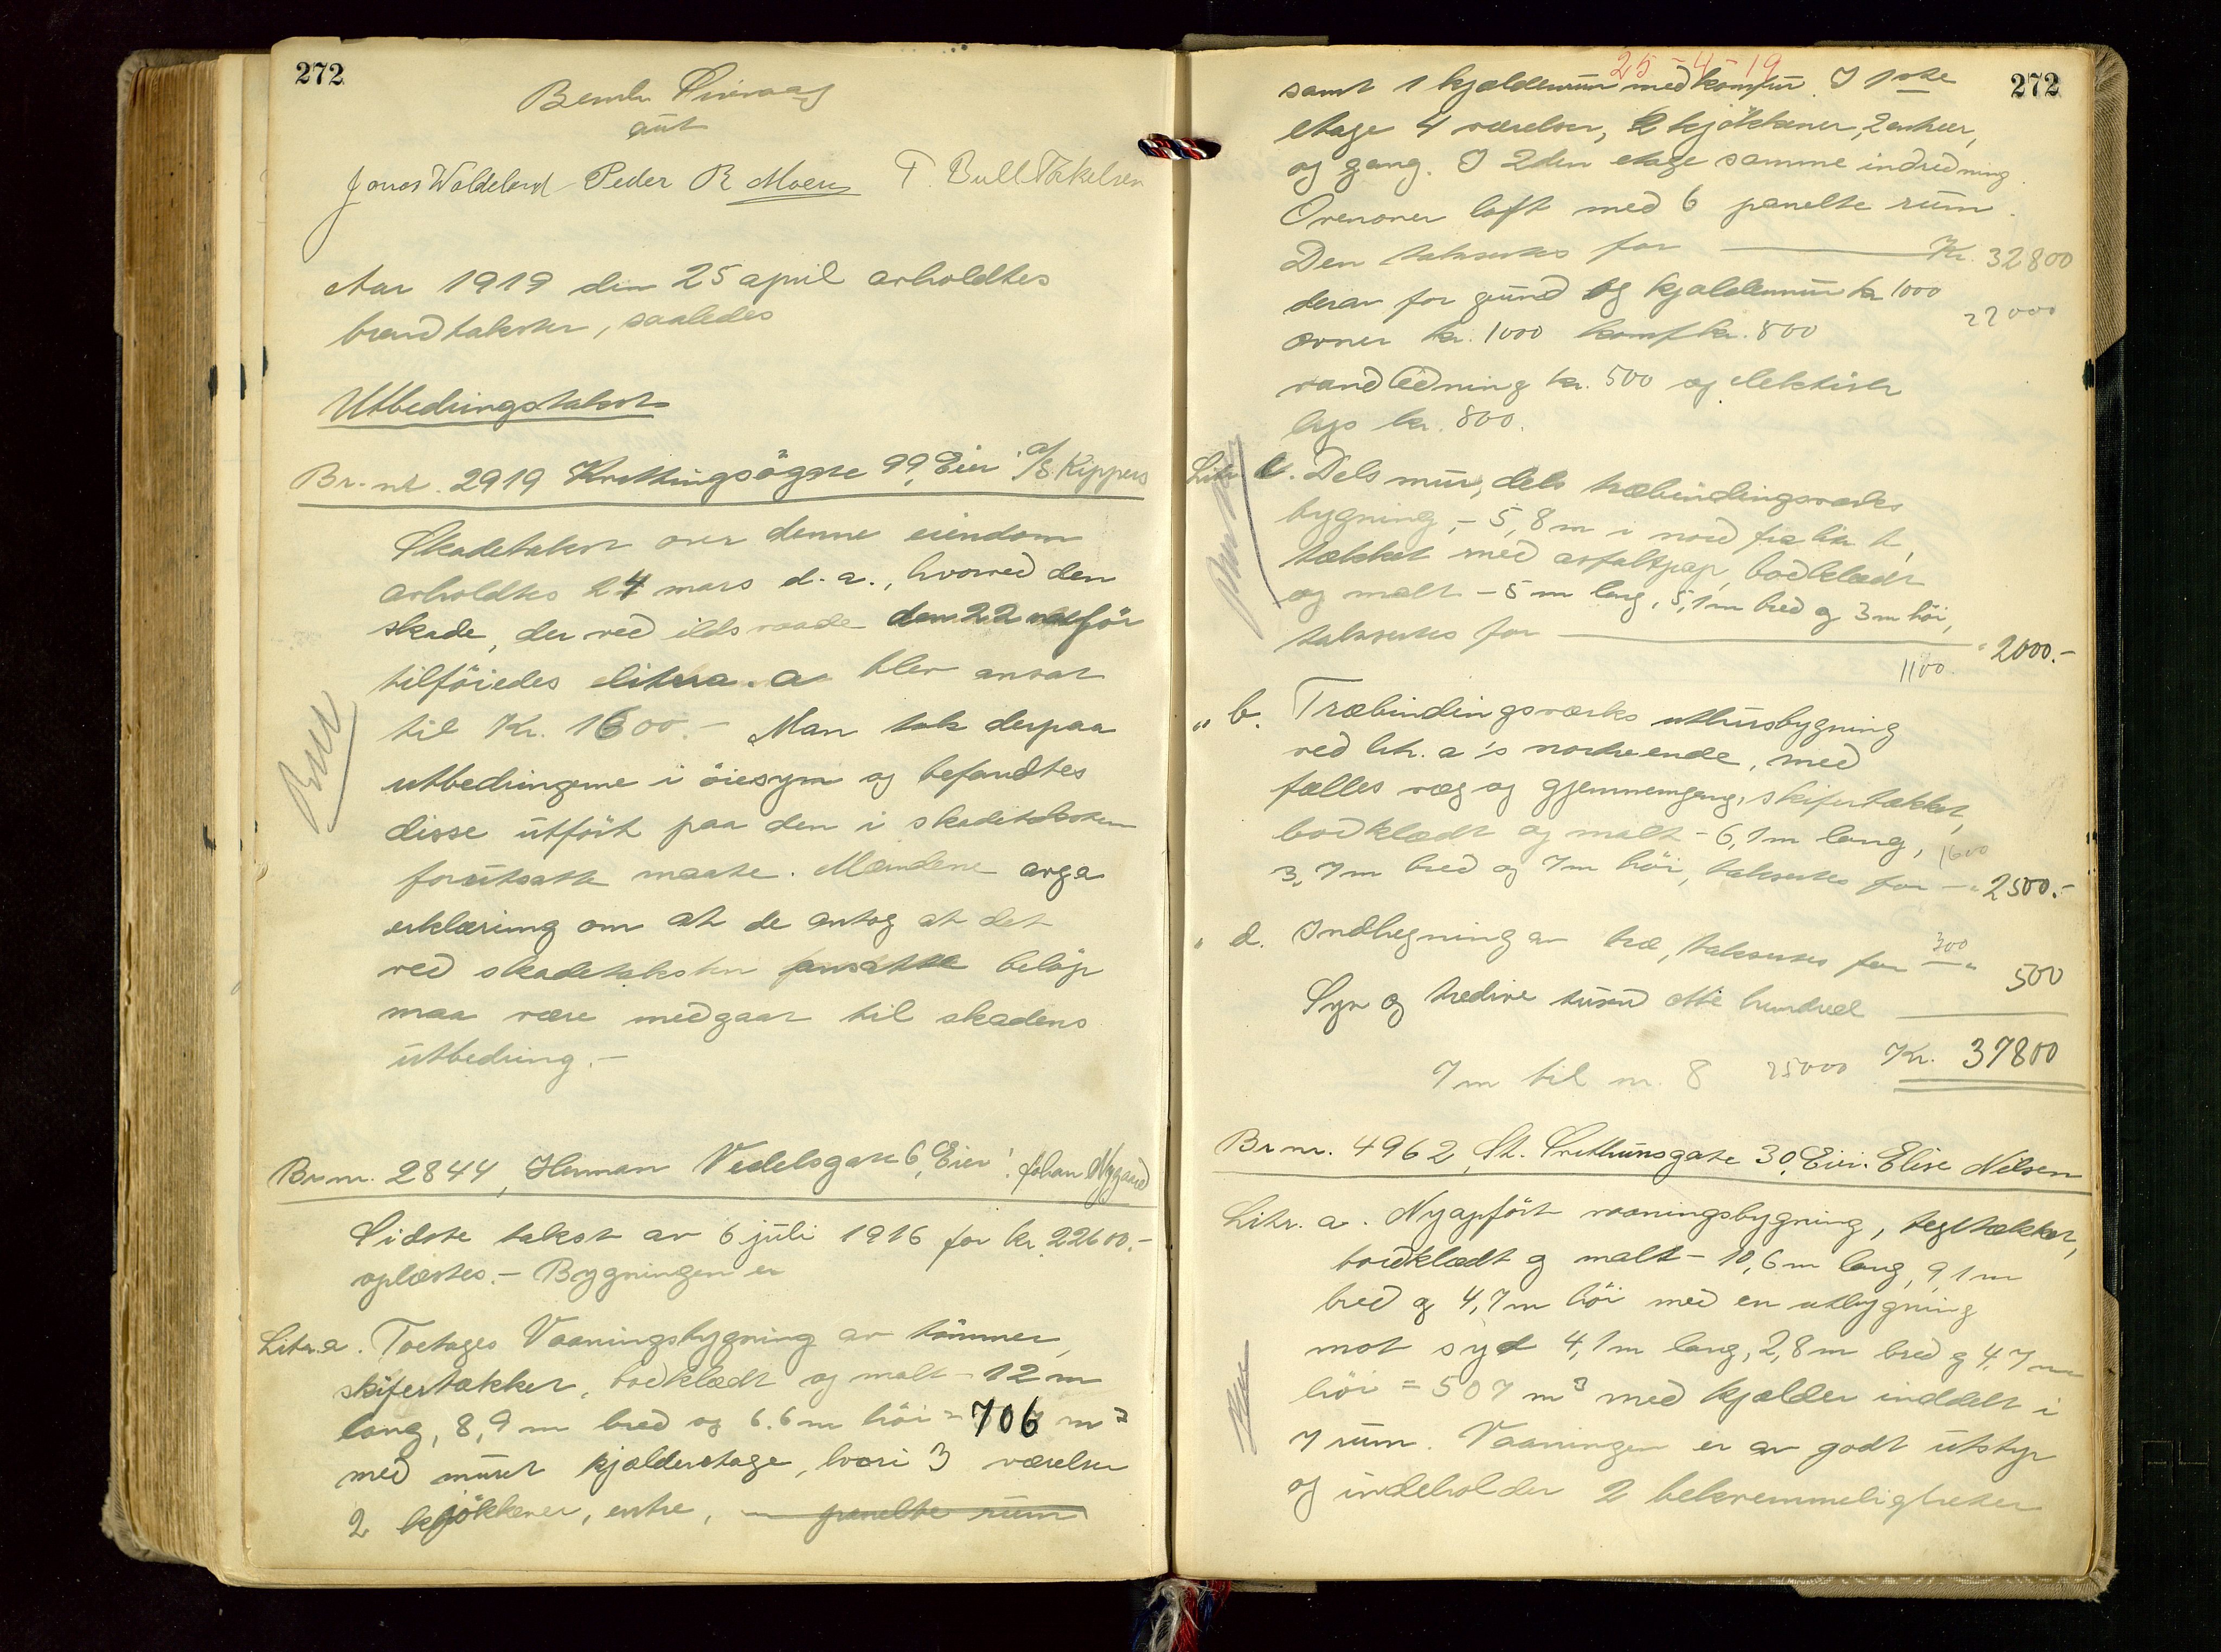 272
Jonas Waldeland Peder R Moen T. Bull Takelsen
Aar 1919 den 25 april avholdtes
brandtakster, saaledes
Utbedringstakst
Br.nr. 2919 Kvittingsögate 99, Eier: A/S Kippers
Skadetakst over denne eiendom
avholdtes 24 mars d.a., hvorved den
skade, der ved ildsvaade den 22 næstfør
tilföiedes litra a blev ansat
til Kr. 1600.- Man tok derpaa
utbedringerne i öiesyn og befandtes
disse utfört paa den i skadetaksten
forutsatte maate. Mændene avga
erklæring om at de antog at det
ved skadetaksten ansatte belöp
maa være medgaat til skadens
utbedring.-
Br.nr. 2844, Herman Vedelsgate 6, Eier: Johan Nygaard
Sidste takst av 6 juli 1916 for kr. 22600.-
oplæstes.- Bygningen er
Litr.a. Toetages Vaaningsbygning av tömmer,
skifertækket, bordklædt og malt - 12 m
lang, 8,9 m bred og 6.6 m höi = 706 m³
med muret kjælderetage, hvori 3 værelser
2 kjökkener, entre, panelte rum
25-4-19
272
samt 1 kjælderrum med komfur. I 1ste
etage 4 værelser, 2 kjökkener, 2 entreer,
og gang. I 2den etage samme indredning.
Ovenover loft med 6 panelte rum.
Den takseres for Kr. 32800
derav for grund og kjældermur kr 1000
22000
ovner kr. 1000 komf kr. 800
vandledning kr. 500 og elektrisk
lys kr. 800.
Litr. Dels mur, dels træbindingsverks
bygning, - 5,8 m i nord fra litr
tækket med asfaltpap, bordklædt
og malt - 5 m lang, 5,1 m bred og 3 m höi,
takseres for " 2000.-
1100
" b. Træbindingsværks uthusbygning
ved litr. a's nordre ende, med
fælles væg og gjennemgang, skifertækket,
bordklædt og malt - 6,1 m lang,
1600
3,7 m bred og 7 m höi, takseres for - " 2500.-
" d. Indhegning av træ, takseres for - " 500
300
Syv og tredive tusind otte hundred
Kr. 37800
7 m til nr. 8 25000
Br nr. 4962, St. Svithunsgate 30, Eier: Elise Nilsen
Litr. a. Nyopfört vaaningsbygning, tegltækket,
bordklædt og malt - 10,6 m lang, 9,1 m
bred og 4,7 m höi med en utbygning
mot syd 4,1 m lang, 2,8 m bred og 4,7 m
höi = 507 m³ med kjælder inddelt i
7 rum. Vaaningen er av godt utstyr
og indeholder 2 bekvemmeligheter